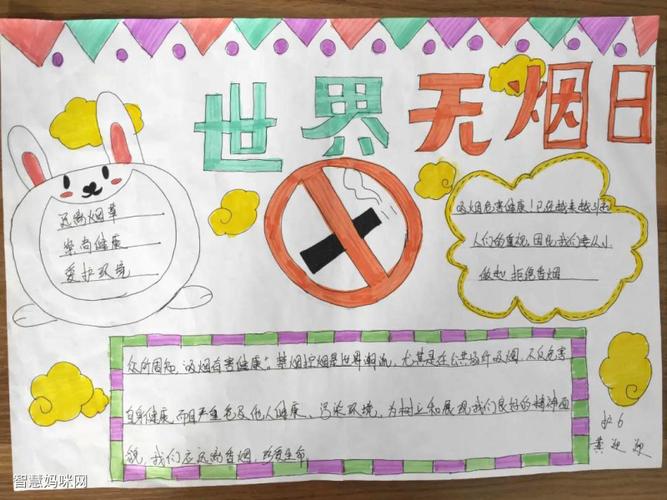 世界无烟日
远离烟草
崇尚健康
爱护环境
吸烟危害健康!已经越来越引起
人们的重视,因此我们要从小
做起拒绝香烟
众所周知,吸烟有害健康。禁烟控烟是世界潮流,尤其是在公共场所吸烟,不仅危害
自身健康,而且严重危及他人健康、污染环境,为树立和展现我们良好的精神面
貌,我们应远离香烟,珍爱生命。
黄迎迎
智慧妈咪网